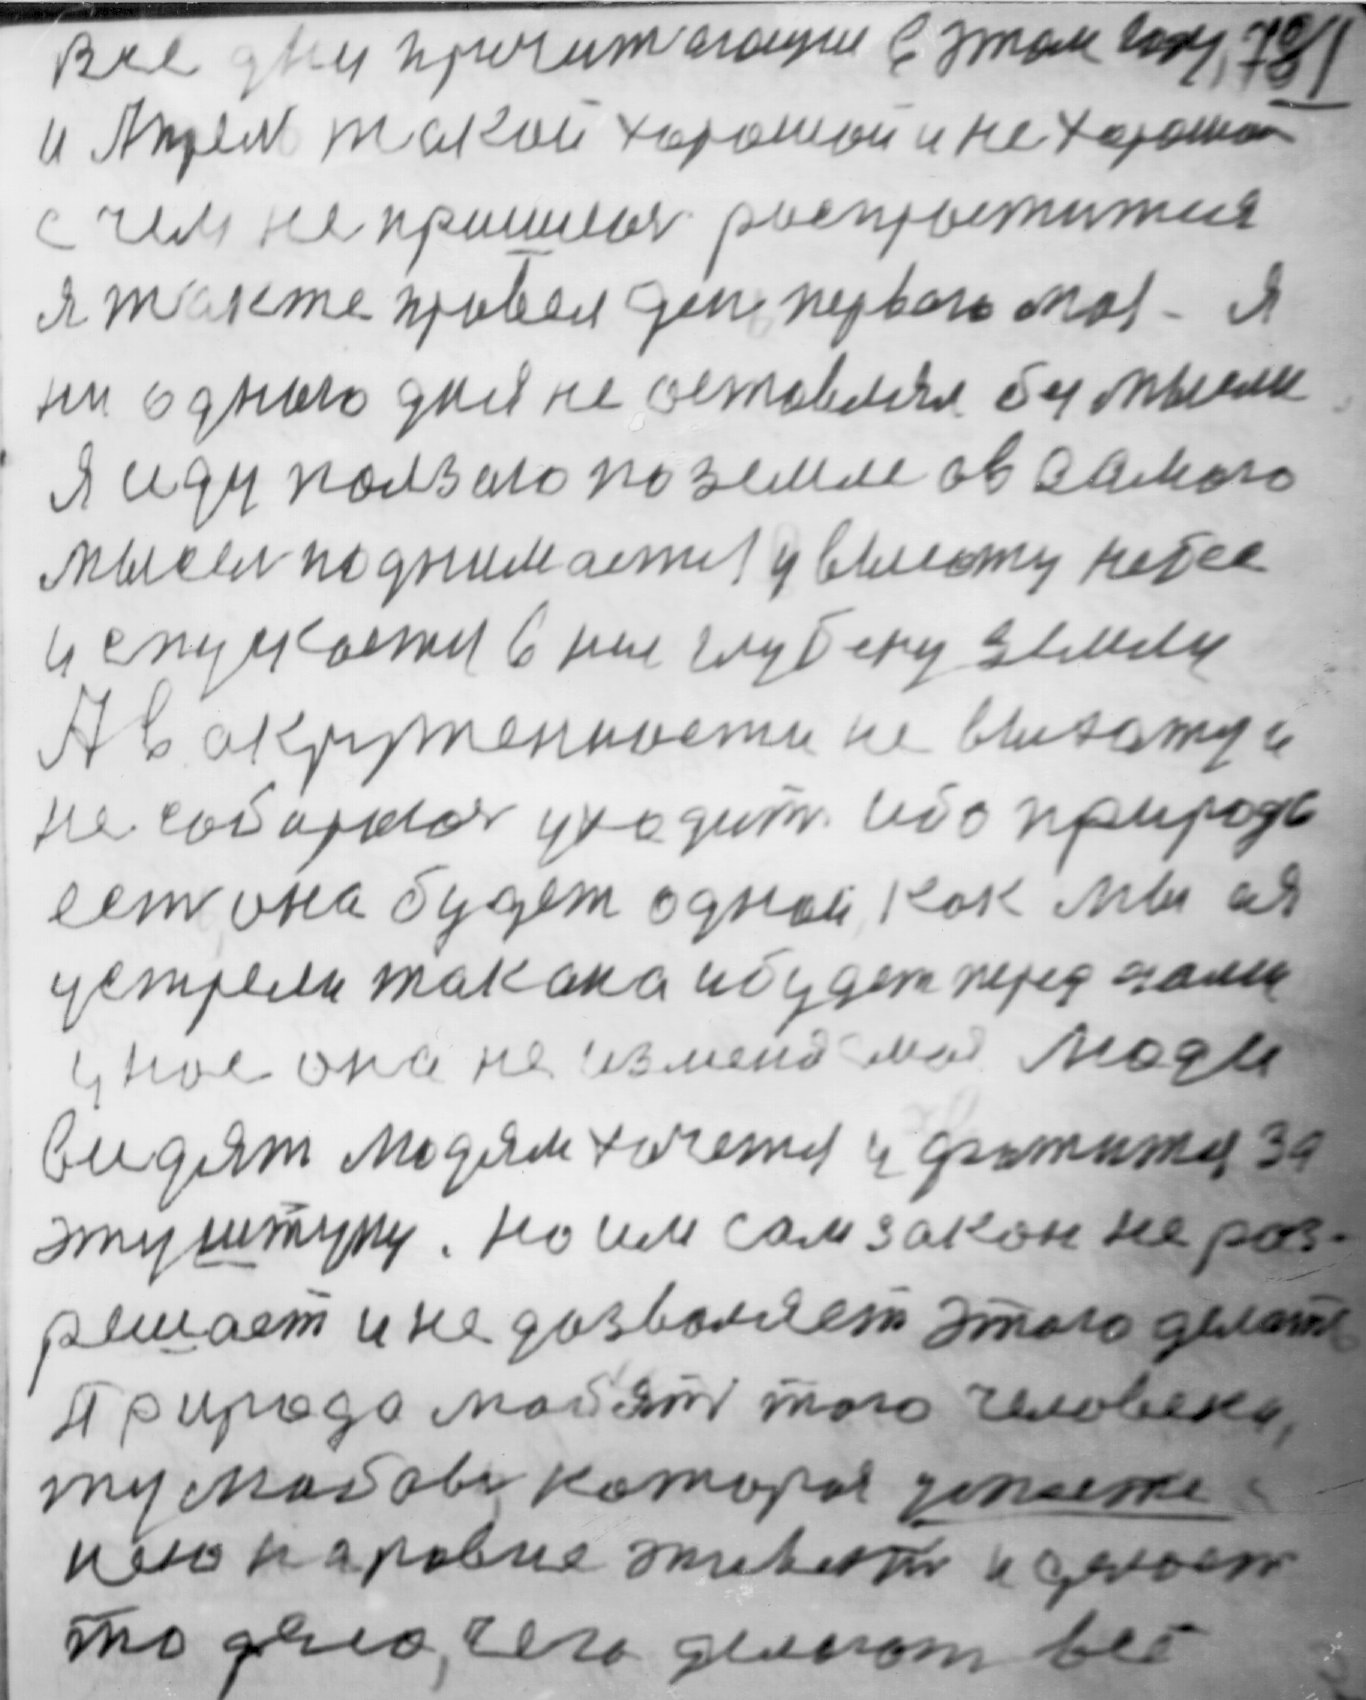 Все дни причитающии в этом году, 78/1
и Апрель такой хорошой и не хорошой
с чем не пришлося роспроститися
я также провел день первого мая - Я
ни одного дня не оставлял бы мысли
Я иду ползаю по земле а в самого
мысель поднимается у высоту небес
и спускается в нис глубену земли
А в окруженности не выхажу и
не собираюся уходить ибо природа
есть она будет одной, как мы ая
устрели так она и будет перед нами
у нас она не изменяемая Люди
видят людям хочется и држатися за
эту штуку. Но им сам закон не роз-
решает и не дозволяет этого делать
Природа любить того человека,
ту любовь, которая
нею наровне живеть и делает
то дело, чего делают все